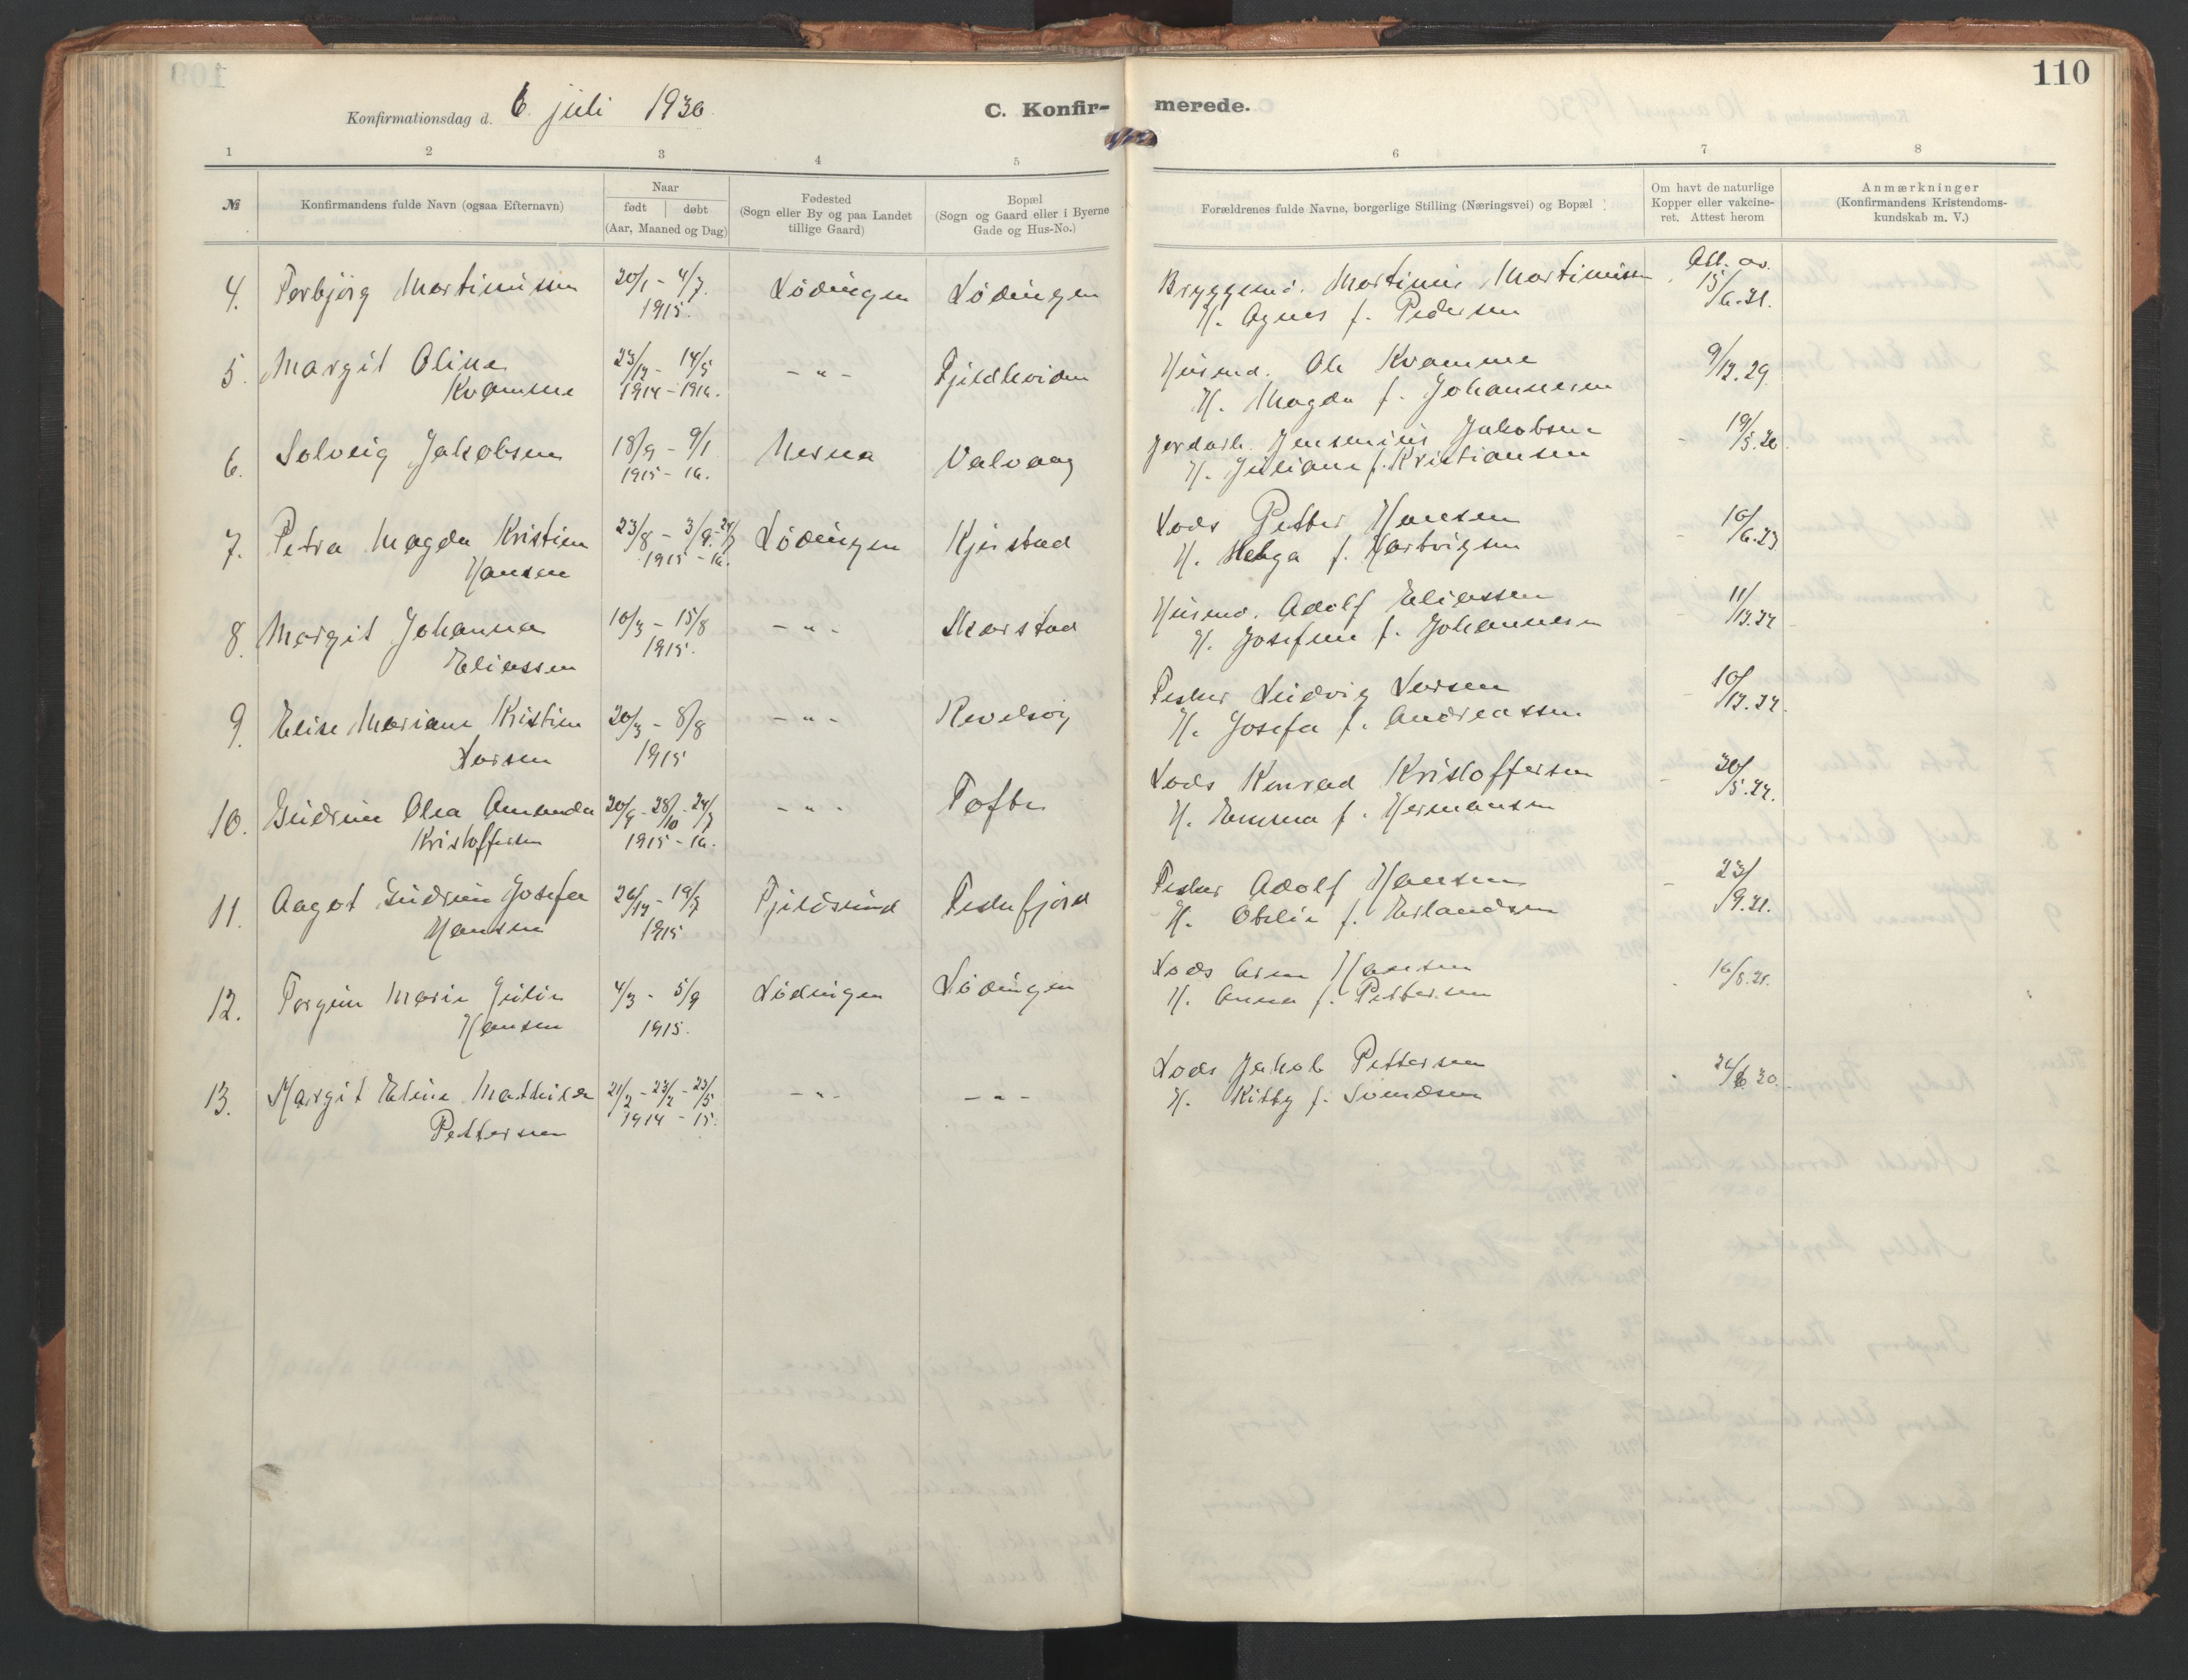 110
Konfirmationsdag d. 6 juli 1930.
C. Konfirmerede.
1 2 3 4 5 6 7 8
№
Konfirmandens fulde Navn (ogsaa Efternavn)
Naar
født | døbt
(Aar, Maaned og Dag)
Fødested
(Sogn eller By og paa Landet
tillige Gaard)
Bopæl
(Sogn og Gaard eller i Byerne
Gade og Hus-No.)
Forældrenes fulde Navne, borgerlige Stilling (Næringsvei) og Bopæl
Om havt de naturlige
Kopper eller vakcine-
ret. Attest herom
Anmærkninger
(Konfirmandens Kristendoms-
kundskab m. V.)
4. Torbjörg Martinussen 20/1 - 4/7. Lödingen Lödingen Bryggemd. Martinus Martinussen Att. av.
1915. H. Agnes f. Pedersen 15/6.21.
5. Margit Oline 23/12 - 14/5 - " - Fjeldkviden Husmd. Ole Kvamme 9/12.29.
Kvamme 1914 - 1916. H. Magda f. Johannesen
6. Solveig Jakobsen 18/9 - 9/1 Nesna Valvaag Jordarb. Jensenius Jakobsen - 19/5.20.
1915 - 16. H. Juliane f. Kristiansen
7. Petra Magda Kristine 23/8 - 3/9. 24/7 Lödingen Kjerstad Lods Petter Hansen - 10/6.23
Hansen 1915 - 16. H. Helga f. Hartvigsen
8. Margit Johanna 10/3 - 15/8 - " - Skarstad Husmd. Adolf Eliassen - 11/12.24
Eliassen 1915. H. Josefine f. Johannesen
9. Elise Mariane Kristine 20/3 - 8/8 - " - Revelsöy Fisker Ludvig Larsen - 10/12.24.
Larsen 1915 H. Josefa f. Andreassen
10. Gudrun Olea Amanda 20/9 - 28/10 - 24/7 - " - Tofte Lods Konrad Kristoffersen - 30/5.24.
Kristoffersen 1915 - 16. H. Emma f. Hermansen
11. Aagot Gudrun Josefa 26/12 - 19/7 Fjeldsund Fiskefjord Fisker Adolf Hansen - 23/9.21.
Hansen 1915 H. Otelie f. Erlandsen
12. Torgun Marie Julie 4/3 - 5/9 Lödingen Lödingen Lods Arne Hansen - 16/8.21.
Hansen 1915. H. Anna f. Pettersen
13. Margit Eline Mathilde 21/2 - 23/2 - 23/5 - " - - " - Lods Jakob Pettersen - 26/6 20.
Pettersen 1914 - 15. H. Kitty f. Svendsen